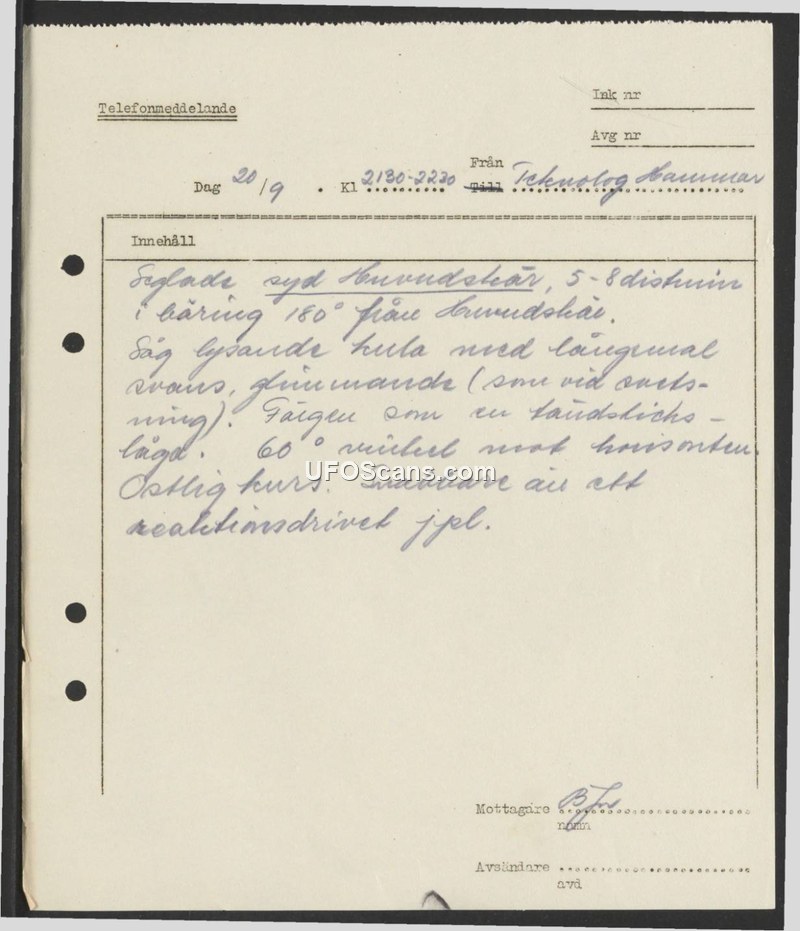 Telefonmeddelande
Ink nr
Avg nr
Dag 20/9 . Kl 2130-2230 Från Till Teknolog Hammar
Innehåll
Seglade syd Huvudskär, 5-8 distmin
i bäring 180° från Huvudskär.
Såg lysande kula med långsmal
svans, glimmande (som vid svets-
ning). Färgen som en tändsticks-
låga. 60° vinkel mot horisonten.
Ostlig kurs. Snabbare än ett
reaktionsdrivet jpl.
UFOScans.com
Mottagare
namn
Avsändare
avd